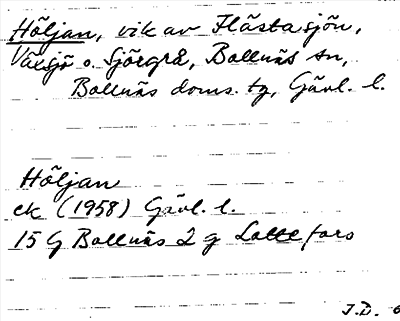 Höljan, vik av Flästasjön,
Växsjö o. Sjörgrå, Bollnäs sn,
Bollnäs doms. tg, Gävl. l.
Höljan
ek (1958) Gävl. l.
15 G Bollnäs 2 g Lottefors
J.D.